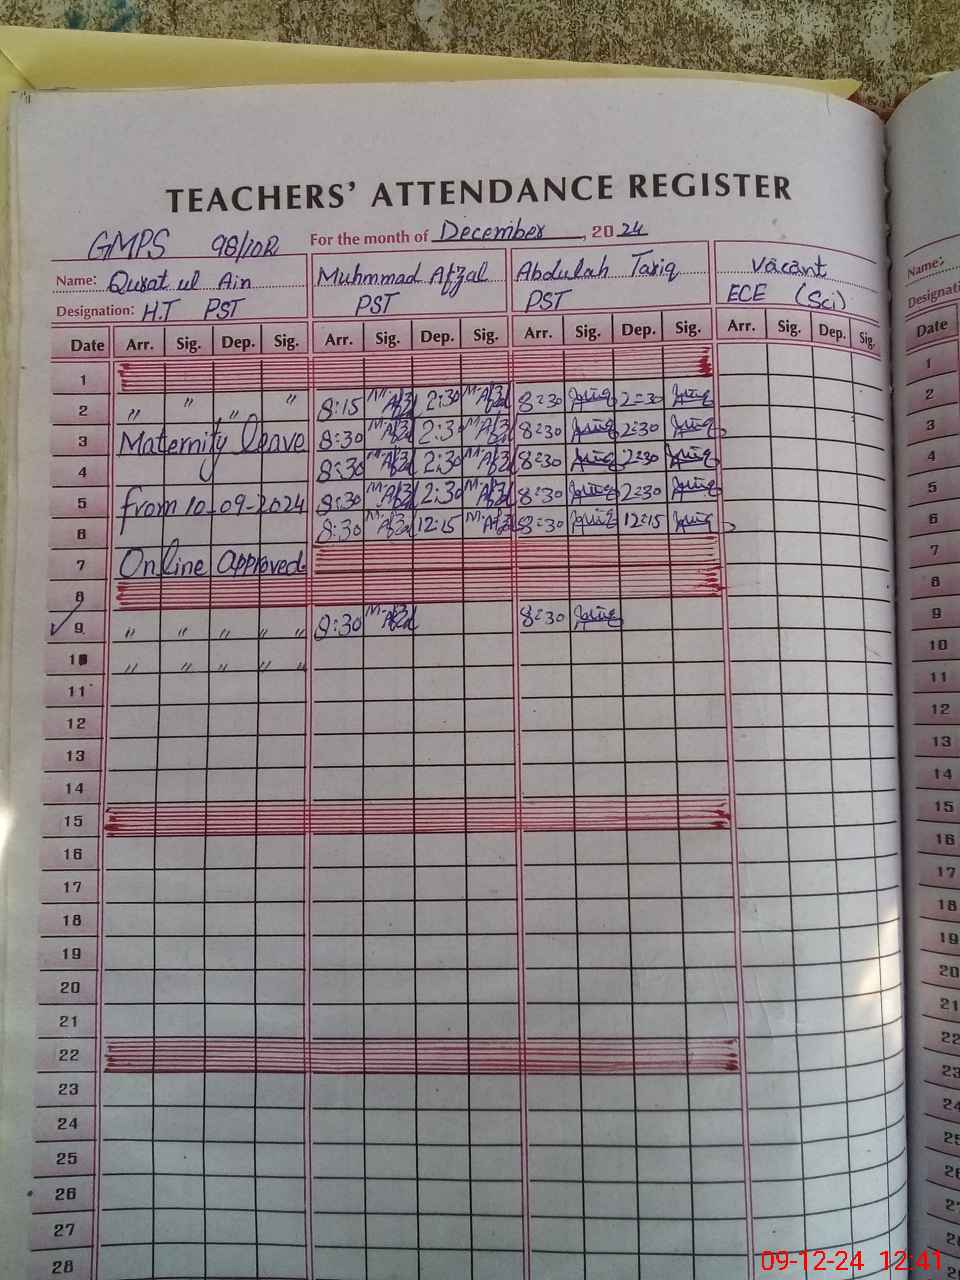 TEACHERS' ATTENDANCE REGISTER
GMPS 98/10R For the month of December, 2024
Name: Qurat ul Ain Muhmmad Afzal Abdulah Tariq Vacant Name:
Designation: H.T PST PST PST ECE (Sci) Designati
Date Arr. Sig. Dep. Sig. Arr. Sig. Dep. Sig. Arr. Sig. Dep. Sig. Arr. Sig. Dep. Sig. Date
1 1
2 " " " " 8:15 M.Afzal 2:30 M.Afzal 8:30 2:30 2
3 Maternity leave 8:30 M.Afzal 2:30 M.Afzal 8:30 2:30 3
4 8:30 M.Afzal 2:30 M.Afzal 8:30 2:30 4
5 from 10-09-2024 8:30 M.Afzal 2:30 M.Afzal 8:30 2:30 5
6 8:30 M.Afzal 12:15 M.Afzal 8:30 12:15 6
7 Online Approved. 7
8 8
9 " " " " " 8:30 M.Afzal 8:30 9
10 " " " " " 10
11 11
12 12
13 13
14 14
15 15
16 16
17 17
18 18
19 19
20 20
21 21
22 22
23 23
24 24
25 25
26 26
27 27
28
09-12-24 12:41